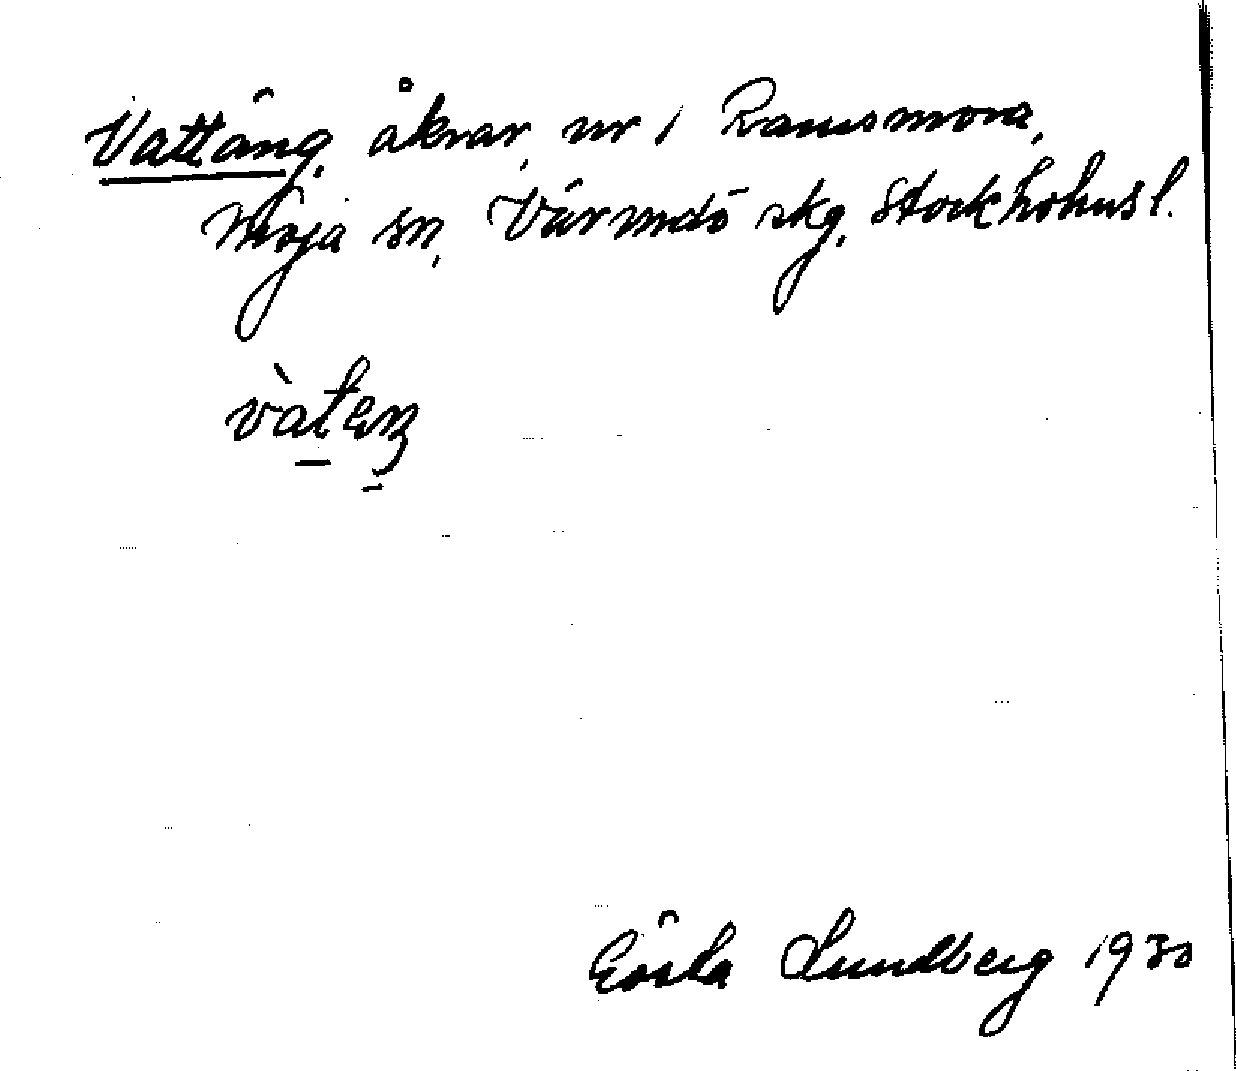 Vattäng, åkrar, nr 1 Ramsmora,
Möja sn, Värmdö skg, Stockholms l.
vàteŋ
Gösta Lundberg 1930